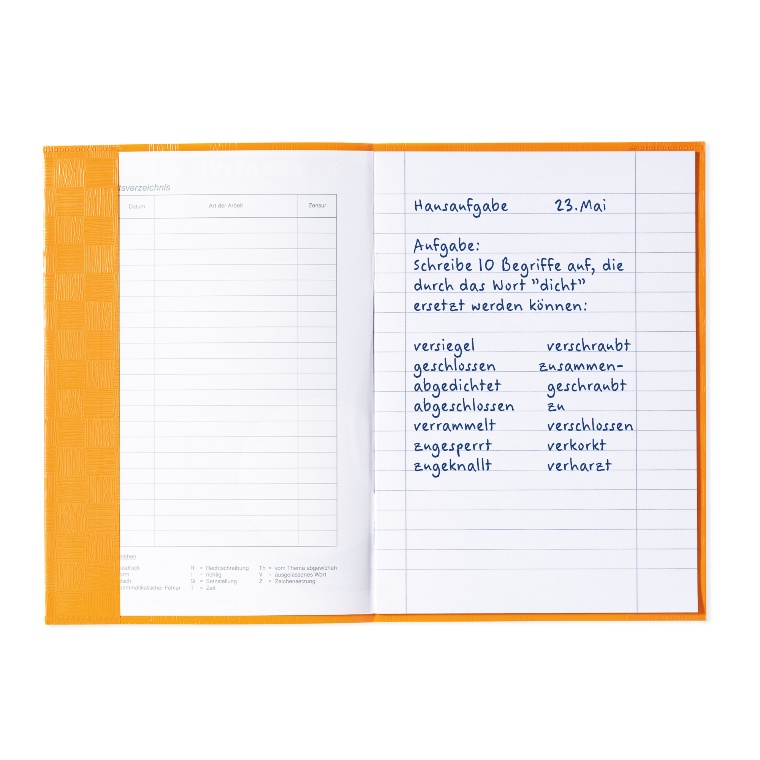 tsverzeichnis
Datum Art der Arbeit Zensur
R = Rechtschreibung Th = vom Thema abgewichen
r = richtig V = ausgelassenes Wort
St = Satzstellung Z = Zeichensetzung
T = Zeit
Hausaufgabe 23.Mai
Aufgabe:
Schreibe 10 Begriffe auf, die
durch das Wort "dicht"
ersetzt werden können:
versiegel verschraubt
geschlossen zusammen-
abgedichtet geschraubt
abgeschlossen zu
verrammelt verschlossen
zugesperrt verkorkt
zugeknallt verharzt